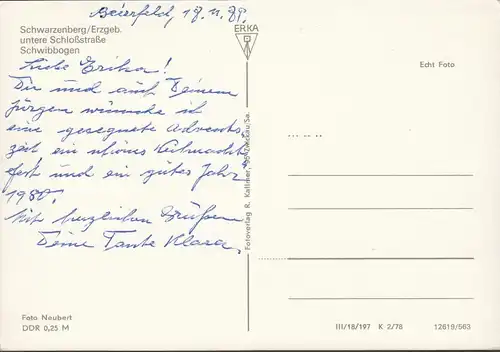 Beierfeld, 17.11.79.
Schwarzenberg/Erzgeb.
untere Schloßstraße
Schwibbogen
Liebe Erika!
Dir und auch Deinem
Jürgen wünsche ich
eine gesegnete Advents-
zeit ein schönes Weihnachts-
fest und ein gutes Jahr
1980!
Mit herzlichen Grüßen
Deine Tante Klara.
Foto Neubert
DDR 0,25 M
ERKA
Fotoverlag R. Kallmer, Zwickau/Sa.
Echt Foto
III/18/197 K 2/78 12619/563